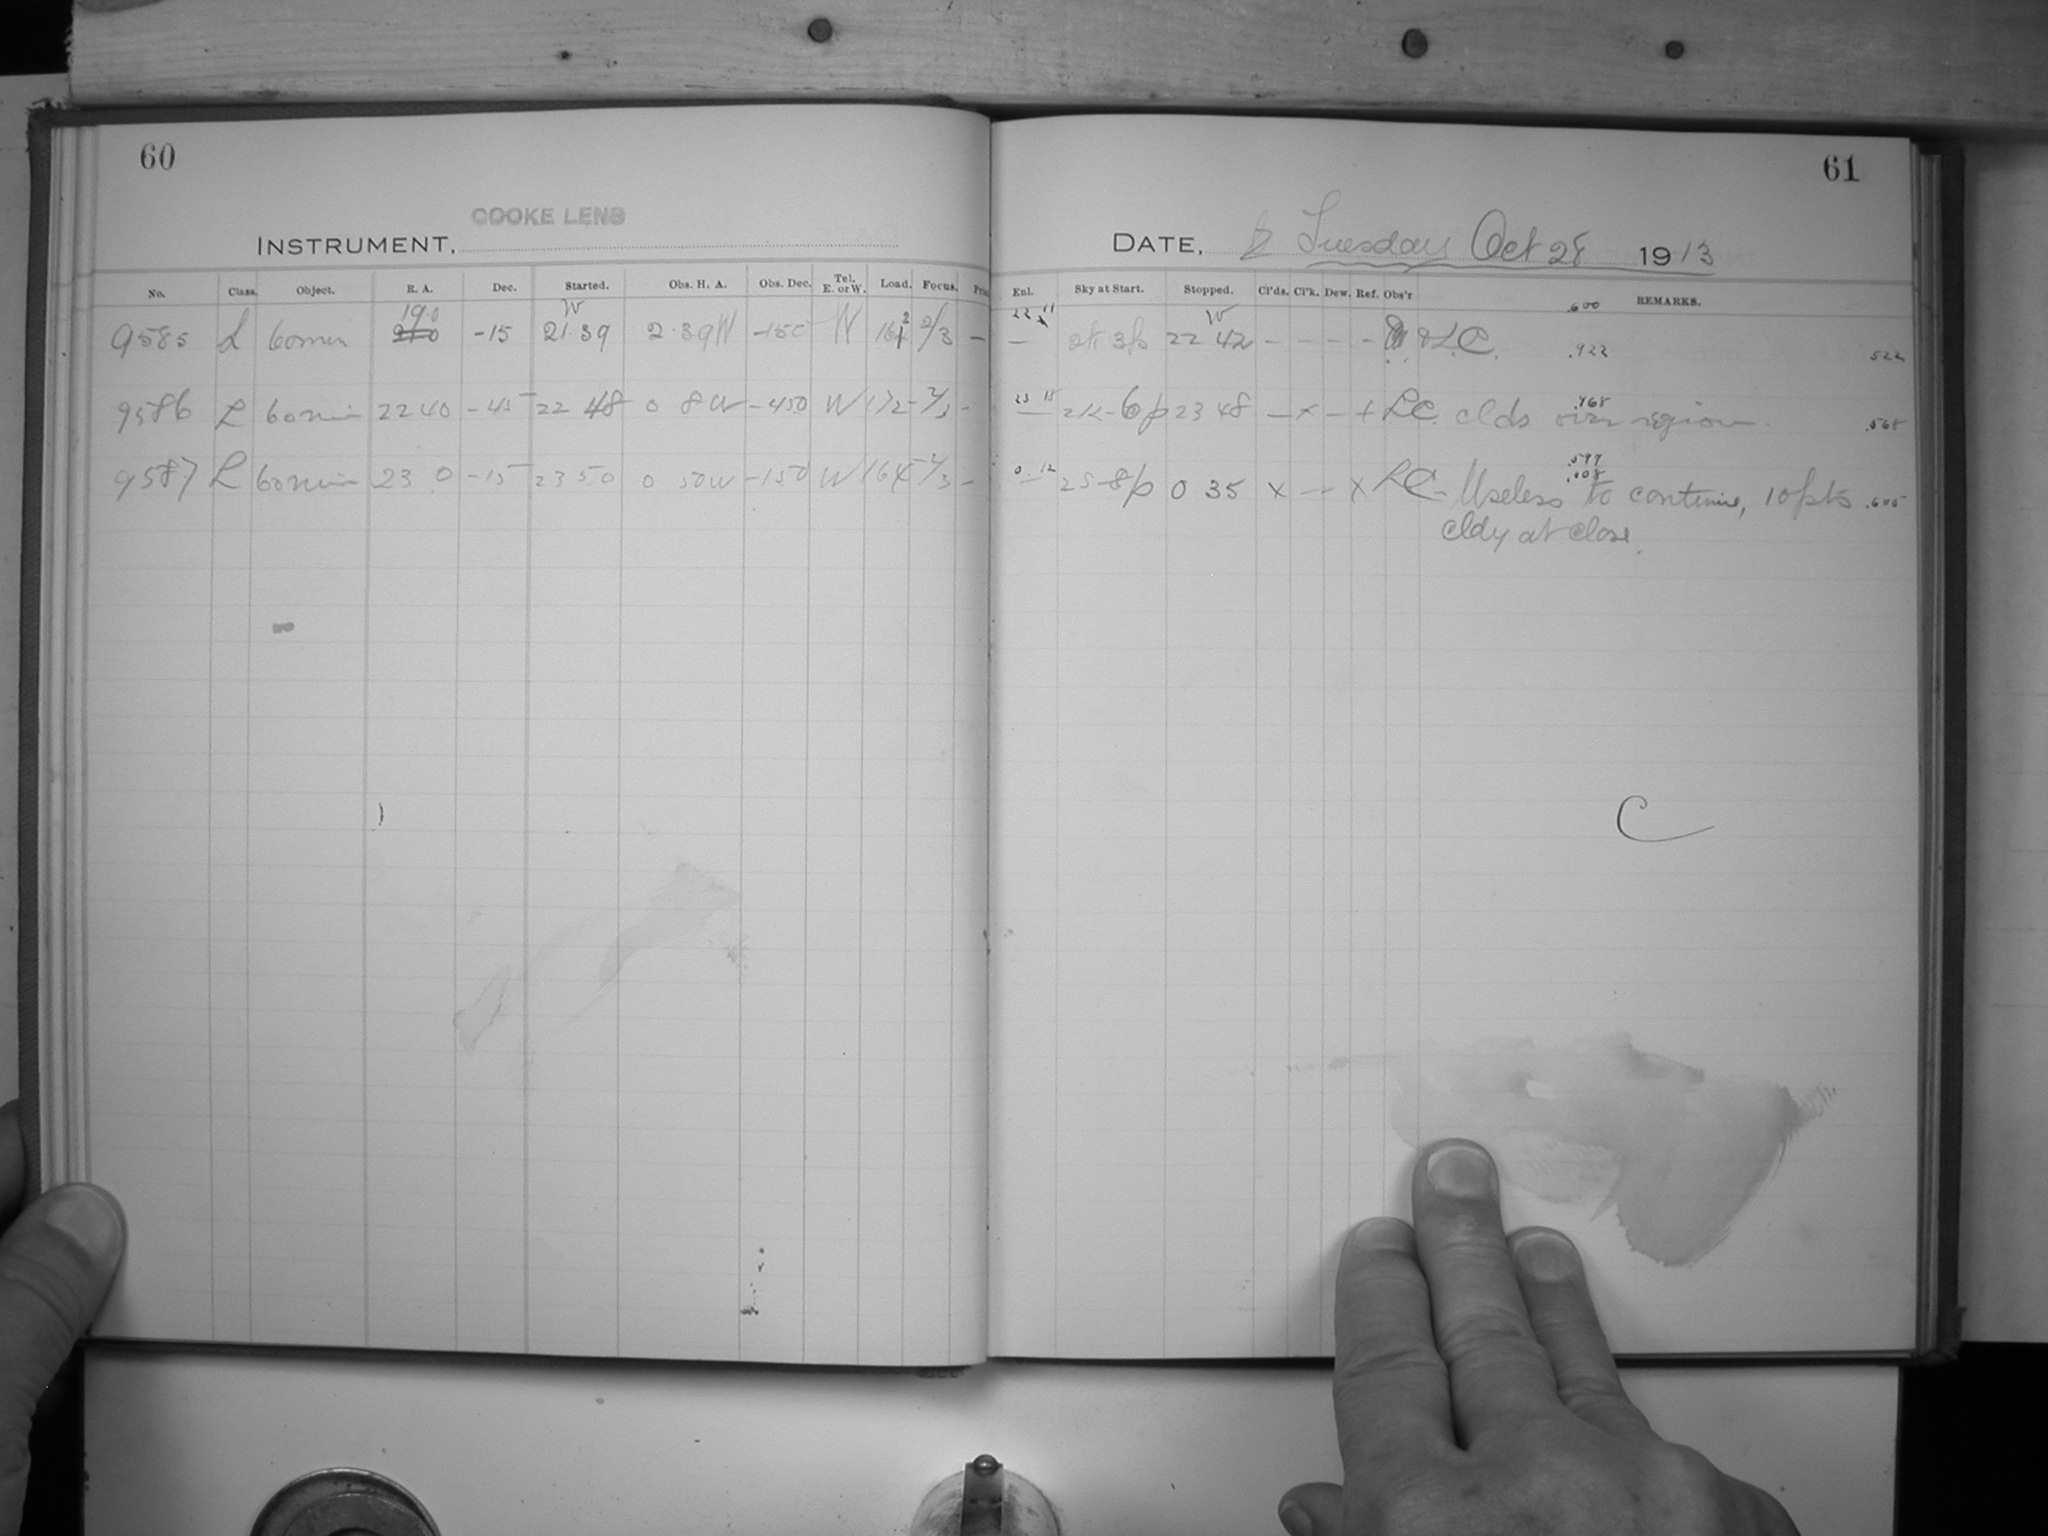 60
COOKE LENS
INSTRUMENT.
No. Class. Object. R. A. Dec. Started. Obs. H. A. Obs. Dec. Tel. E. or W. Load. Focus.
19.0 W
9585 L 60 min -15 21.39 2.39W -150 W 2/3 —
9586 L 60 min 22 40 -45 22 48 0 8W -450 W 172 2/3 -
9587 L 60 min 23 0 -15 23 50 0 50W -150 W 164 2/3 -
61
DATE. Tuesday Oct 28 1913
Enl. Sky at Start. Stopped. Cl'ds. Cl'k. Dew. Ref. Obs'r REMARKS.
22 11 W .600
— 3p 22 42 - - - - LC. .922 522
23 15 .968
— 6p 23 48 — x — + LC. clds over region. .568
0 12 .597
.008
25-8p 0 35 x — x LC- Useless to continue, 10 pts .605
cldy at close.
C